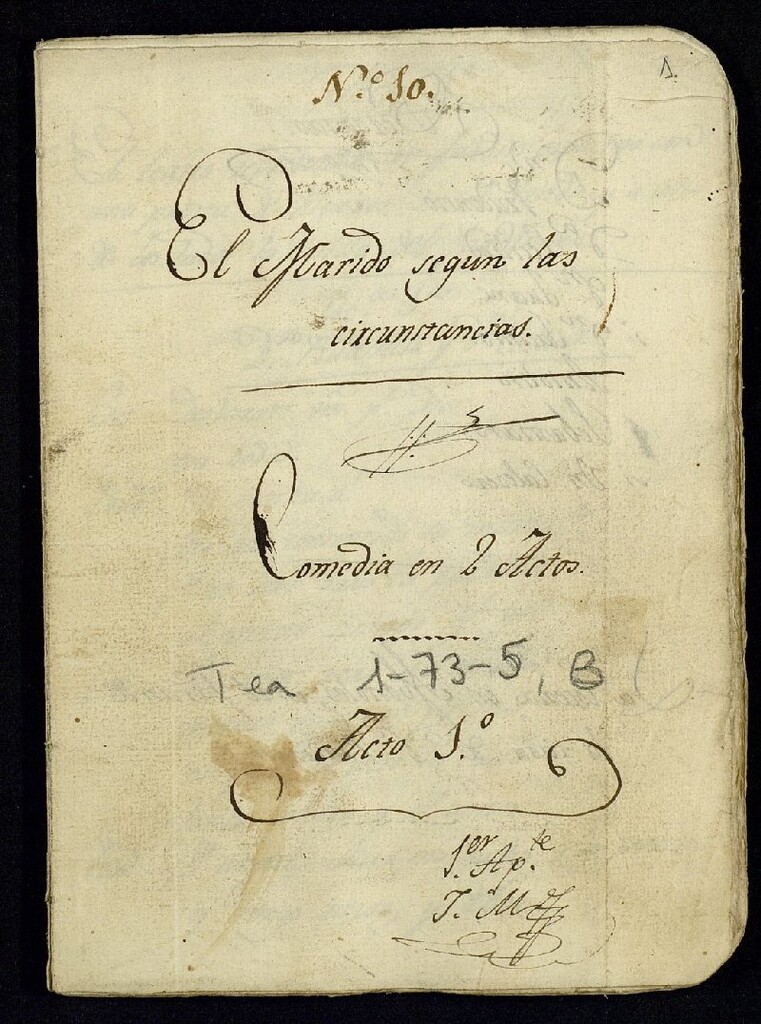 N.º 10.
1.
El Marido segun las
circunstancias.
Comedia en 2 Actos.
Tea 1-73-5, B
Acto 1.º
1.er Ap.te